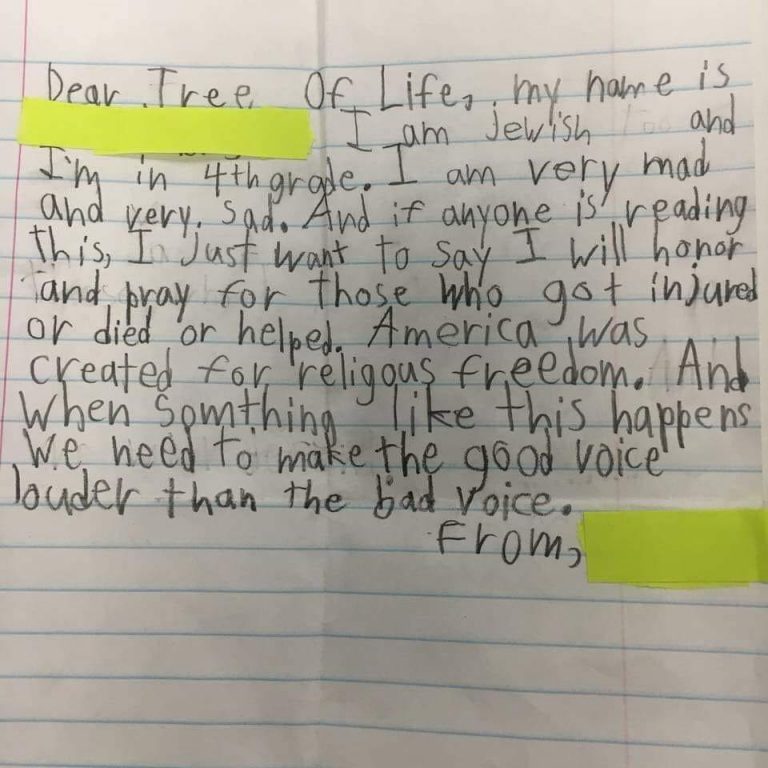 Dear Tree Of Life, my name is
I am Jewish and
I'm in 4th grade. I am very mad
and very sad. And if anyone is reading
this, I just want to say I will honor
and pray for those who got injured
or died or helped. America was
created for religous freedom. And
when somthing like this happens
we need to make the good voice
louder than the bad voice.
From,